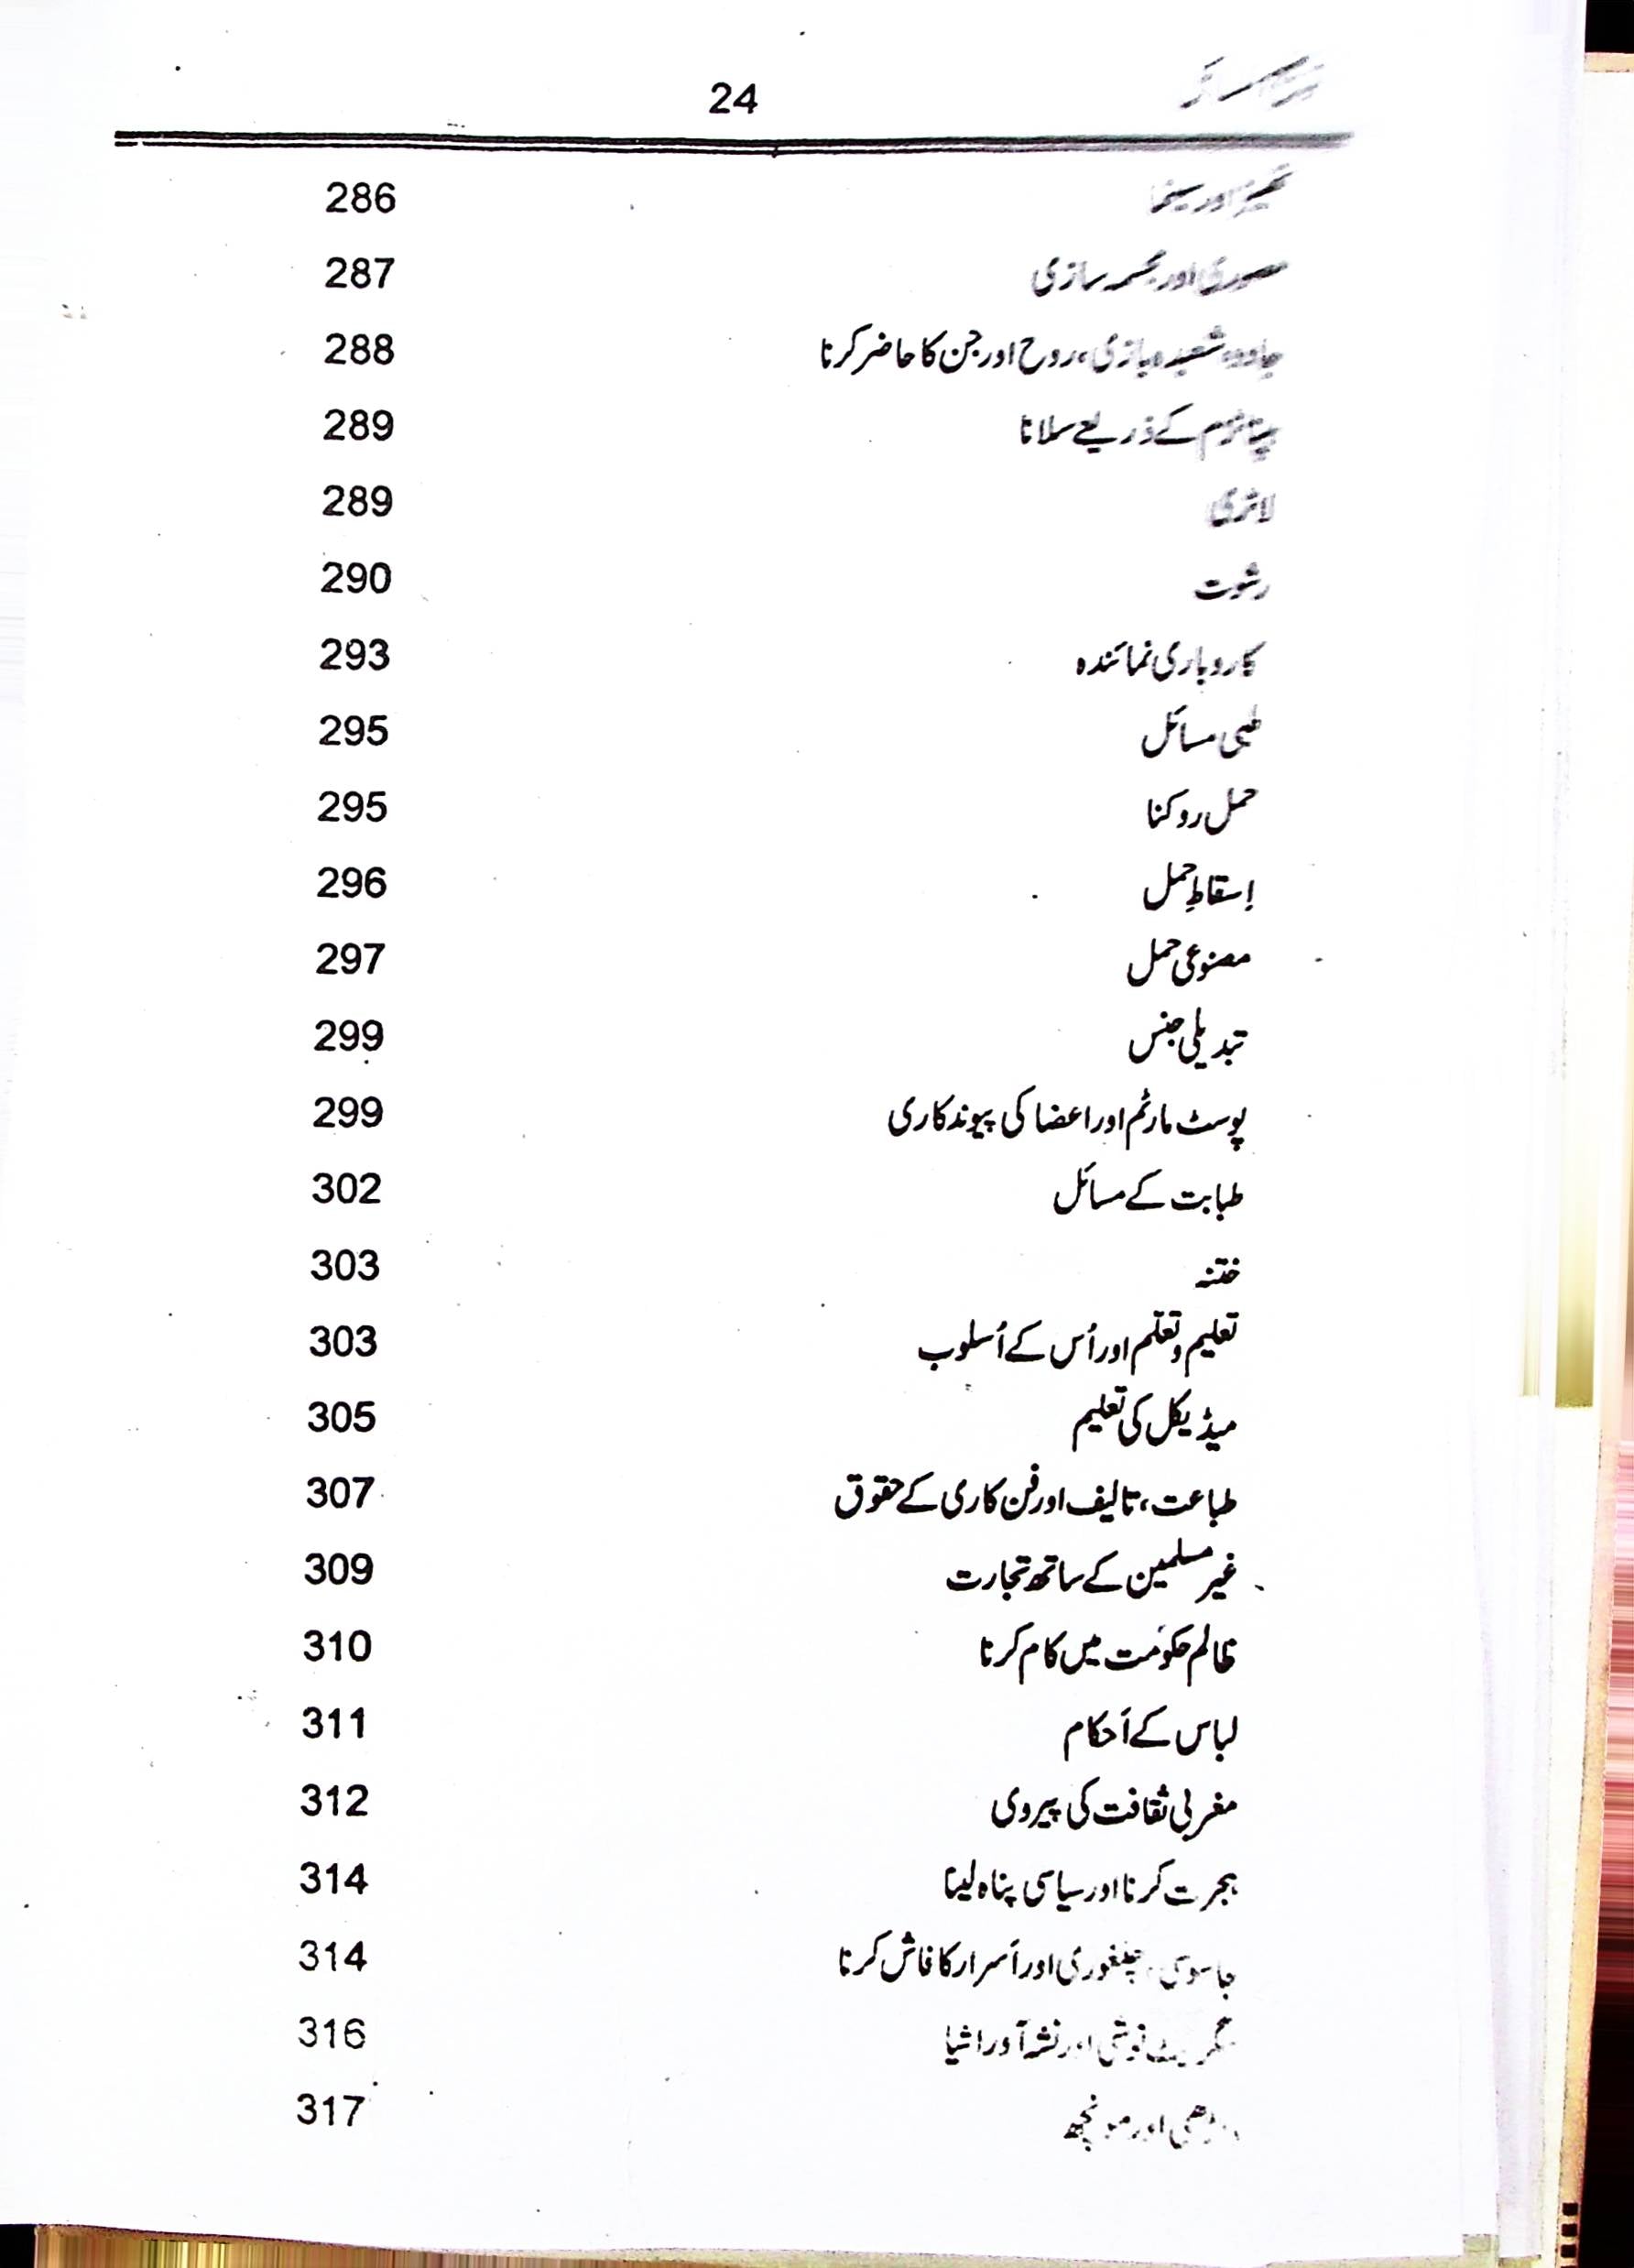 24
تھیٹر اور سینما 286
مصوری اور مجسمہ سازی 287
جادو، شعبدہ بازی، روح اور جن کا حاضر کرنا 288
ہپناٹزم کے ذریعے سلانا 289
لاٹری 289
رشوت 290
کاروباری نمائندہ 293
طبی مسائل 295
حمل روکنا 295
اِسقاطِ حمل 296
مصنوعی حمل 297
تبدیلی جنس 299
پوسٹ مارٹم اور اعضا کی پیوندکاری 299
طبابت کے مسائل 302
ختنہ 303
تعلیم و تعلّم اور اُس کے اُسلوب 303
میڈیکل کی تعلیم 305
طباعت، تالیف اور فن کاری کے حقوق 307
غیر مسلمین کے ساتھ تجارت 309
ظالم حکومت میں کام کرنا 310
لباس کے اَحکام 311
مغربی ثقافت کی پیروی 312
ہجرت کرنا اور سیاسی پناہ لینا 314
جاسوسی، چغلخوری اور اَسرار کا فاش کرنا 314
سگریٹ نوشی اور نشہ آور اشیا 316
داڑھی اور مونچھ 317